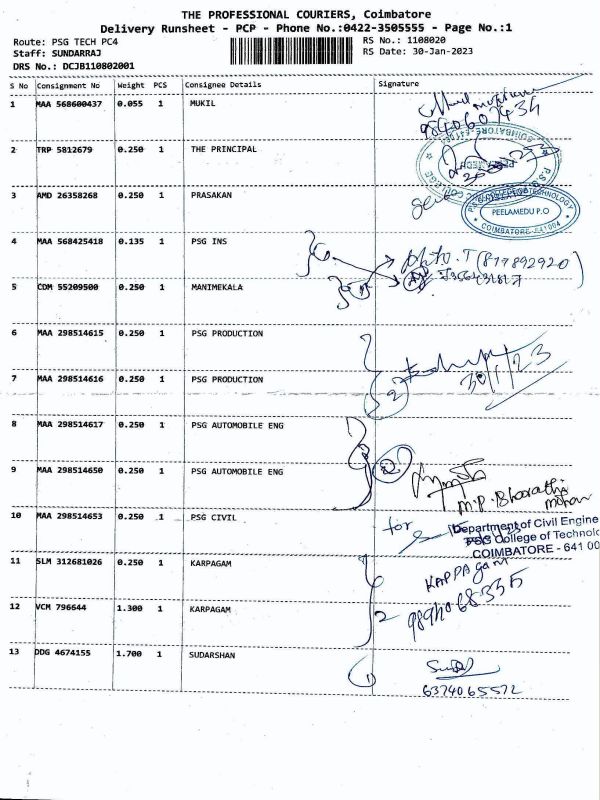 THE PROFESSIONAL COURIERS, Coimbatore
Delivery Runsheet - PCP - Phone No.:0422-3505555 - Page No.:1
Route: PSG TECH PC4
Staff: SUNDARRAJ
DRS No.: DCJB110802001
RS No.: 1108020
RS Date: 30-Jan-2023
S No Consignment No Weight PCS Consignee Details Signature
1 MAA 568600437 0.055 1 MUKIL
9840607434
2 TRP 5812679 0.250 1 THE PRINCIPAL
3 AMD 26358268 0.250 1 PRASAKAN
PEELAMEDU P.O
COIMBATORE-641004
4 MAA 568425418 0.135 1 PSG INS
5 CDM 55209500 0.250 1 MANIMEKALA
6 MAA 298514615 0.250 1 PSG PRODUCTION
30/1/23
7 MAA 298514616 0.250 1 PSG PRODUCTION
2
8 MAA 298514617 0.250 1 PSG AUTOMOBILE ENG
9 MAA 298514650 0.250 1 PSG AUTOMOBILE ENG
2
M.P. Bharathi
mohan
10 MAA 298514653 0.250 1 PSG CIVIL
for
Department of Civil Engine
PSG College of Technolo
COIMBATORE - 641 00
11 SLM 312681026 0.250 1 KARPAGAM
KARPAgam
12 VCM 796644 1.300 1 KARPAGAM
2
9894068335
13 DDG 4674155 1.700 1 SUDARSHAN
1
6374065572